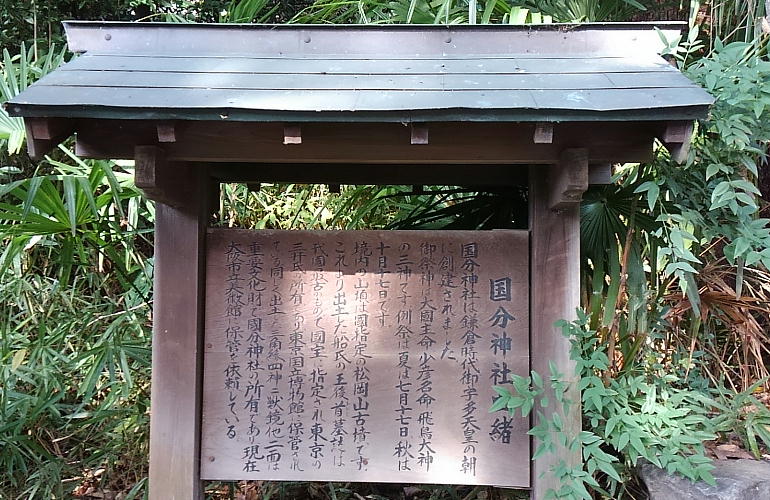 国分神社 緒
国分神社は鎌倉時代御宇多天皇の朝
に創建されました
御祭神は大国主命 少彦名命 飛鳥大神
の三神です 例祭は夏は七月十七日 秋は
十月十七日です
境内の山頂は國指定の松岡山古墳です
これより出土した船氏の王後首墓誌は
我国最古のもので国宝に指定され東京の
三井氏の所有であり東京国立博物館に保管され
てる 同じ出土した三角縁四神二獣鏡他二面は
重要文化財で國分神社の所有であり現在
大阪市立美術館に保管を依頼している